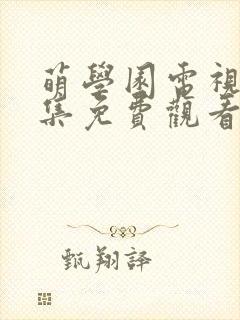 萌學園電視
集免費觀看
甄翔譯